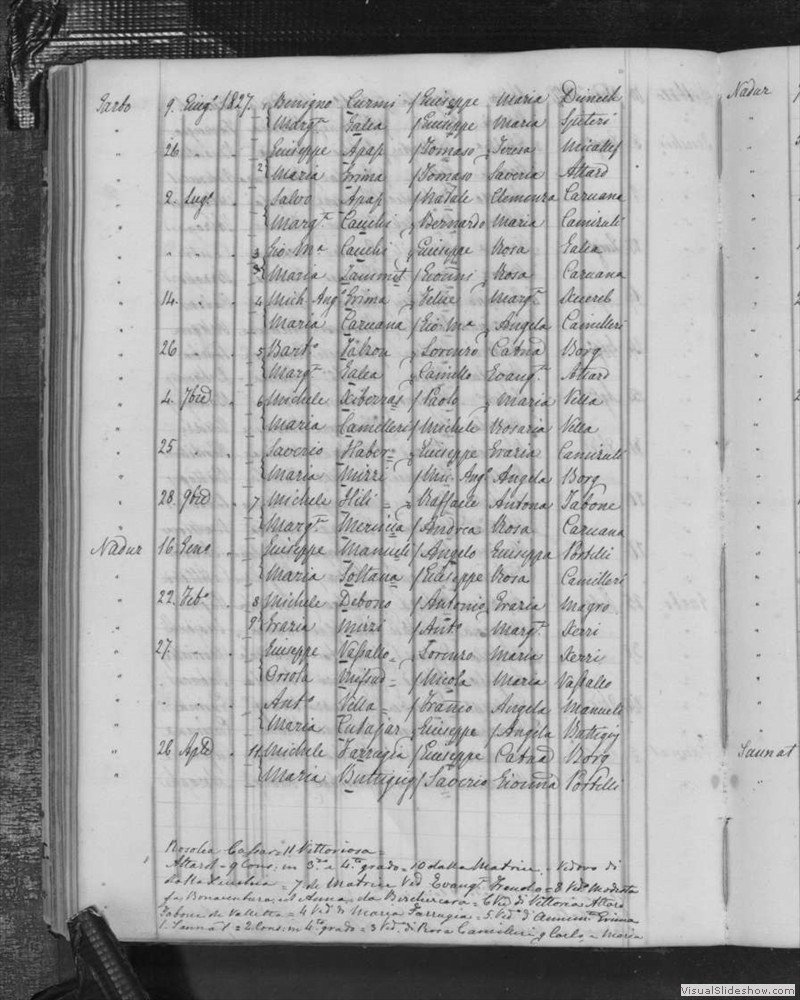 Garbo 9. Giug° 1827. 1 Benigno Curmi / Giuseppe Maria
Marg.ª Galea / Giuseppe Maria Spiteri
26 Giuseppe Apap / Tomaso Teresa Micallef
2 Maria Grima / Tomaso Saveria Attard
2. Lug° Salvo Apap / Natale Clemenza Caruana
Marg.ª Cauchi / Bernardo Maria
3 Gio Mª Cauchi / Giuseppe Rosa Galea
Maria Zammit Rosa Caruana
14. 4 Mich. Ang° Grima / Felice Marg.ª Xuereb
Maria Caruana / Gio Mª Angela Camilleri
26 5 Bart° Falzon / Lorenzo Catna Borg
Marg.ª Galea / Camillo Evang.ª Attard
4. 7bre 6 Michele Xiberras / Paolo Maria Vella
Maria Camilleri / Michele Rosaria Vella
25 Saverio Haber = / Giuseppe Grazia
Maria Mizzi / Mic. Ang° Angela Borg
28. 9bre 7 Michele Hili = Raffaele Antona Tabone
Marg.ª / Andrea Rosa Caruana
Nadur 16. Gen° Giuseppe / Angelo Giuseppa Portelli
Maria Soltana / Giuseppe Rosa Camilleri
22. Feb° 8 Michele Debono / Antonio Grazia Magro
9 Grazia Mizzi / Ant° Marg.ª Xerri
27. Giuseppe Vassallo = Lorenzo Maria Xerri
Orsola Mifsud = / Nicola Maria Vassallo
Ant° Vella = / Franco Angela
Maria Cutajar / Giuseppe / Angela Buttigig
26 Aple 11 Michele Farrugia / Giuseppe Catna Borg
Maria Buttigieg / Saverio Gioanna Portelli
Rosolea = 11 Vittoriosa =
Attard = 9 Cons: in 3° e 4to grado = 10 dalla Matrice. Vedovo di
= 7 de Matrice Ved. Evang.ª = 8 Ved.
fu Bonaventura, ed Anna, da Birchircara = 6 Ved. di Vittoria Attard
Tabone de Valletta = 4 Ved. di Maria Farrugia = 5. Ved. Grima
1. Sannat = 2 Cons: in 4to grado = 3 Ved. di Rosa Camilleri q Carlo = Maria
Nadur
Sannat
VisualSlideshow.com